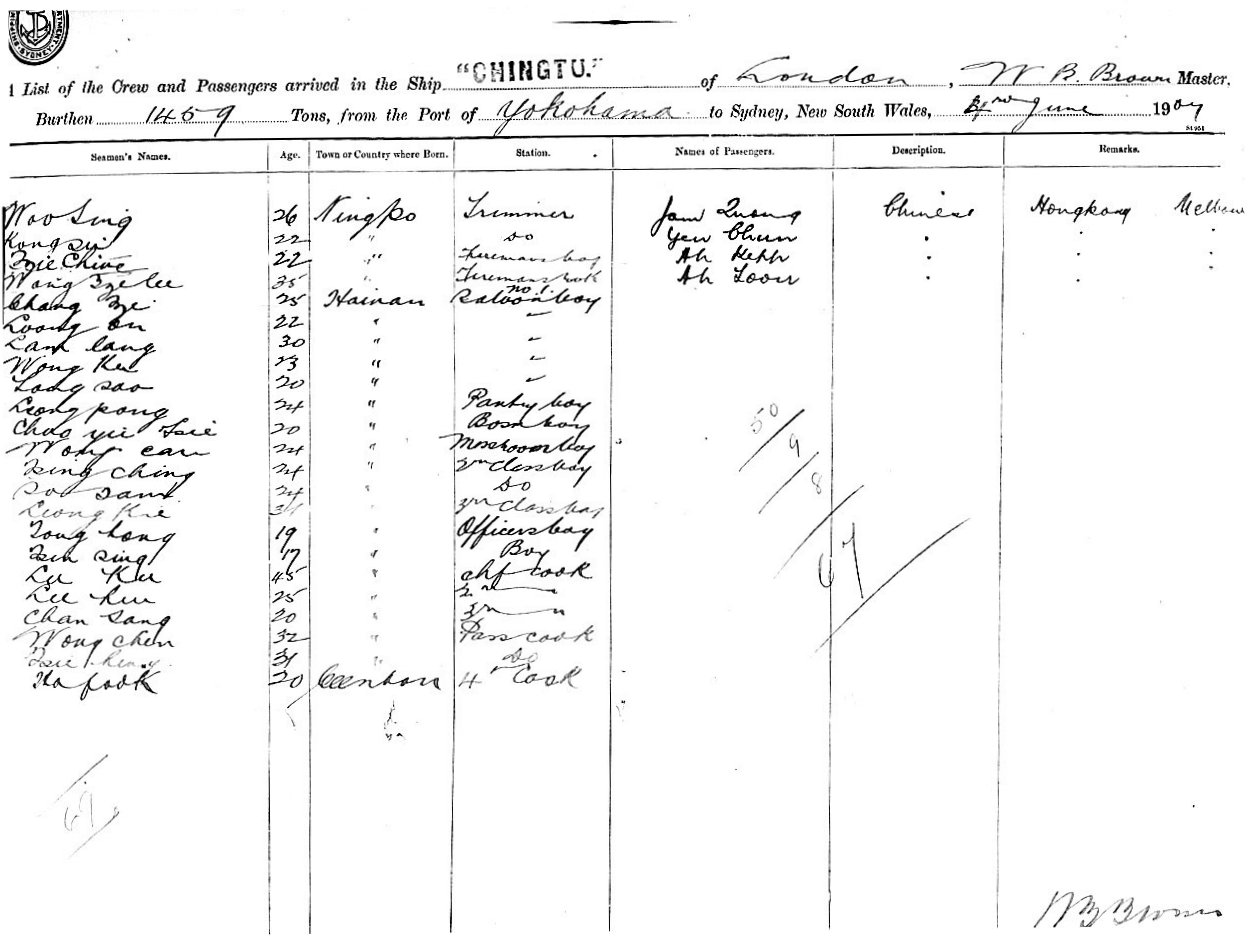 SYDNEY
List of the Crew and Passengers arrived in the Ship "CHINGTU." of London, W B. Brown Master,
Burthen 1459 Tons, from the Port of Yokohama to Sydney, New South Wales, June 1907
Seamen's Names. Age. Town or Country where Born. Station. Names of Passengers. Description. Remarks.
Woo Sing 26 Ningpo Trimmer Jam Quong Chinese Hongkong
22 " Do Yew Chun . .
22 " Firemans boy Ah . .
Wong 35 " Firemans Ah Loou . .
Chang 25 Hainan no 1. Saloon boy
Loong on 22 " "
Lam lang 30 " "
Wong 23 " "
20 " "
Leong pong 24 " Pantry boy
Chao yu Tsie 20 " Bosn boy
Wong can 24 " Messroom boy
Tsing Ching 24 " class boy
24 " Do
Leong Kie " class boy
Tong hong 19 " Officers boy
sing 17 " Boy
45 " chf cook
Lee 25 "
Chan Sang 20 "
Wong chen 32 " Pass cook
Tsie 31 " Do
Ho fook 20 4 Cook
50
9
8
67
W B Brown